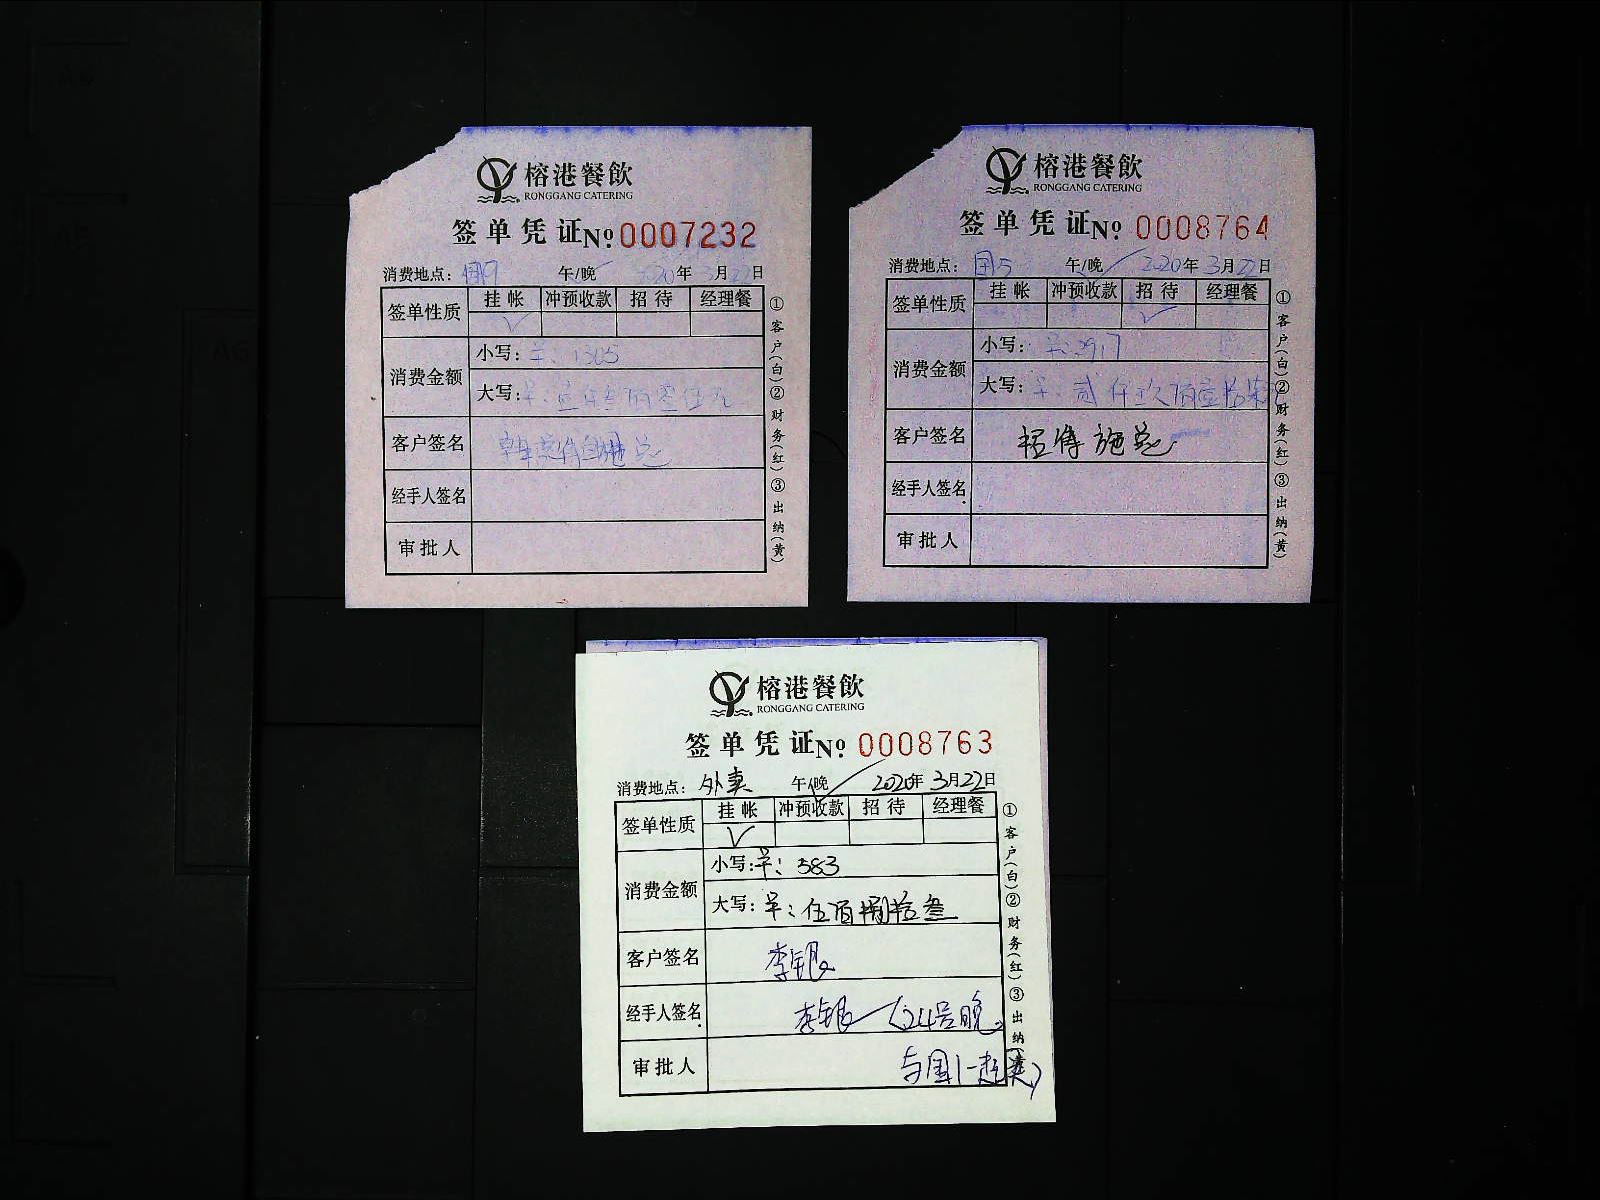 榕港餐飲
RONGGANG CATERING
签单凭证№0007232
消费地点: 国9 午/晚 2020年3月22日
签单性质 挂帐 冲预收款 招待 经理餐
✓
消费金额
小写: 羊: 1305
大写: 羊: 壹仟叁佰零伍元
客户签名 施总
经手人签名
审批人
①客户(白)②财务(红)③出纳(黄)
榕港餐飲
RONGGANG CATERING
签单凭证№0008764
消费地点: 国5 午/晚 2020年3月22日
签单性质 挂帐 冲预收款 招待 经理餐
✓
消费金额
小写: 羊: 2917
大写: 羊: 贰仟玖佰壹拾柒
客户签名 施总
经手人签名
审批人
①客户(白)②财务(红)③出纳(黄)
榕港餐飲
RONGGANG CATERING
签单凭证№0008763
消费地点: 外卖 午/晚 2020年3月22日
签单性质 挂帐 冲预收款 招待 经理餐
✓
消费金额
小写: 羊: 583
大写: 羊: 伍佰捌拾叁
客户签名 李银
经手人签名 李银 (24号晚
审批人 与国1一起
①客户(白)②财务(红)③出纳(黄)